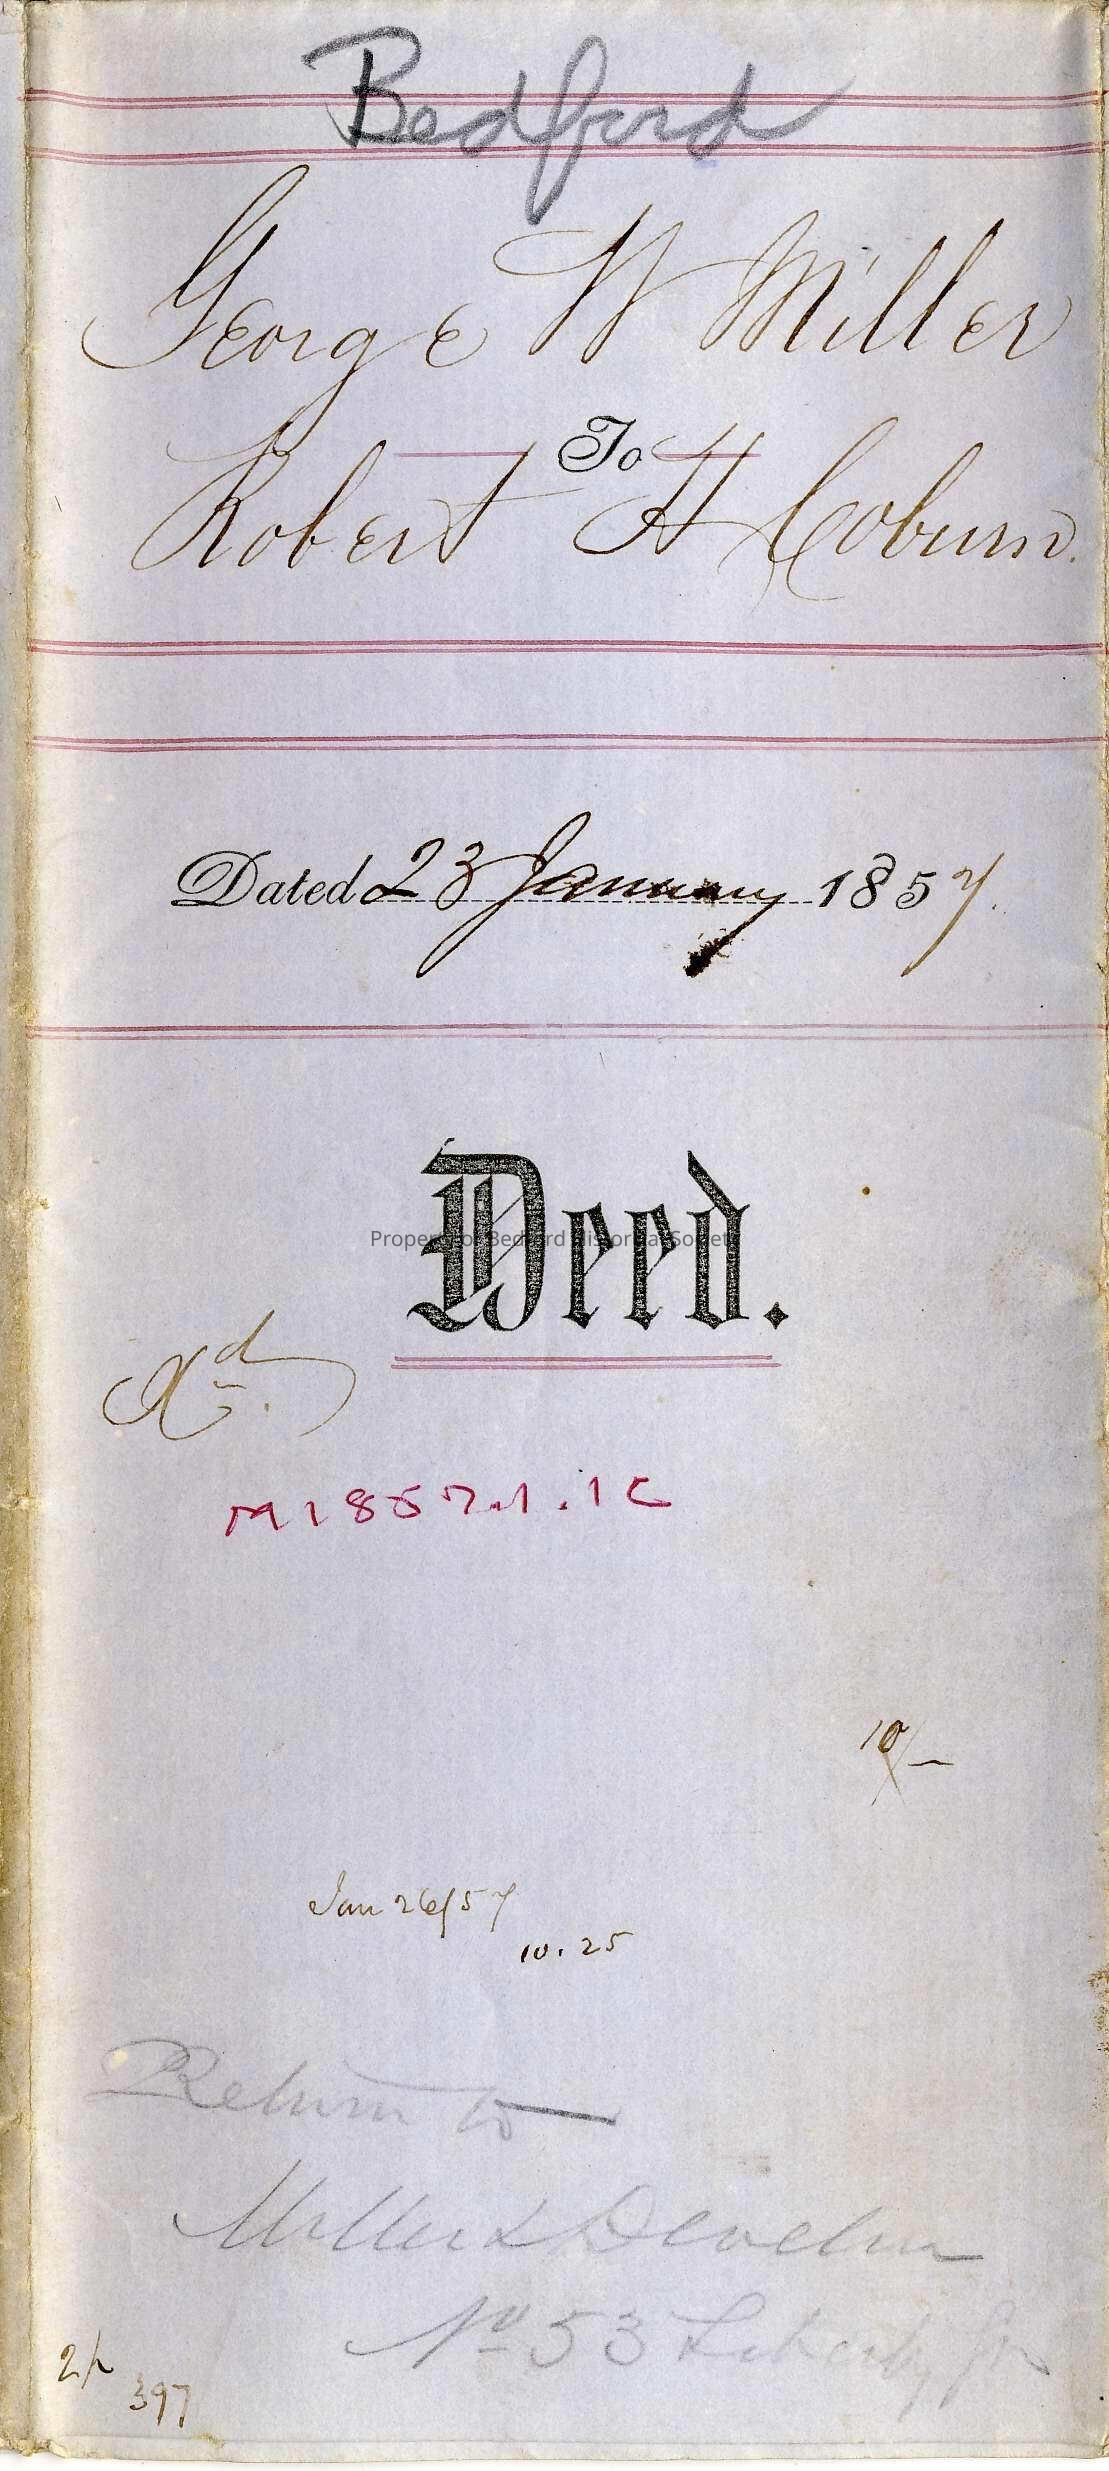 Bedford
George W Miller
To
Robert H Coburn.
Dated 23 January 1857.
Deed.
Property of Bedford Historical Society
Xd.
M1857.1.1C
10/-
Jan 26/57
10.25
Return to
Miller & Develin
No 53 Liberty
397